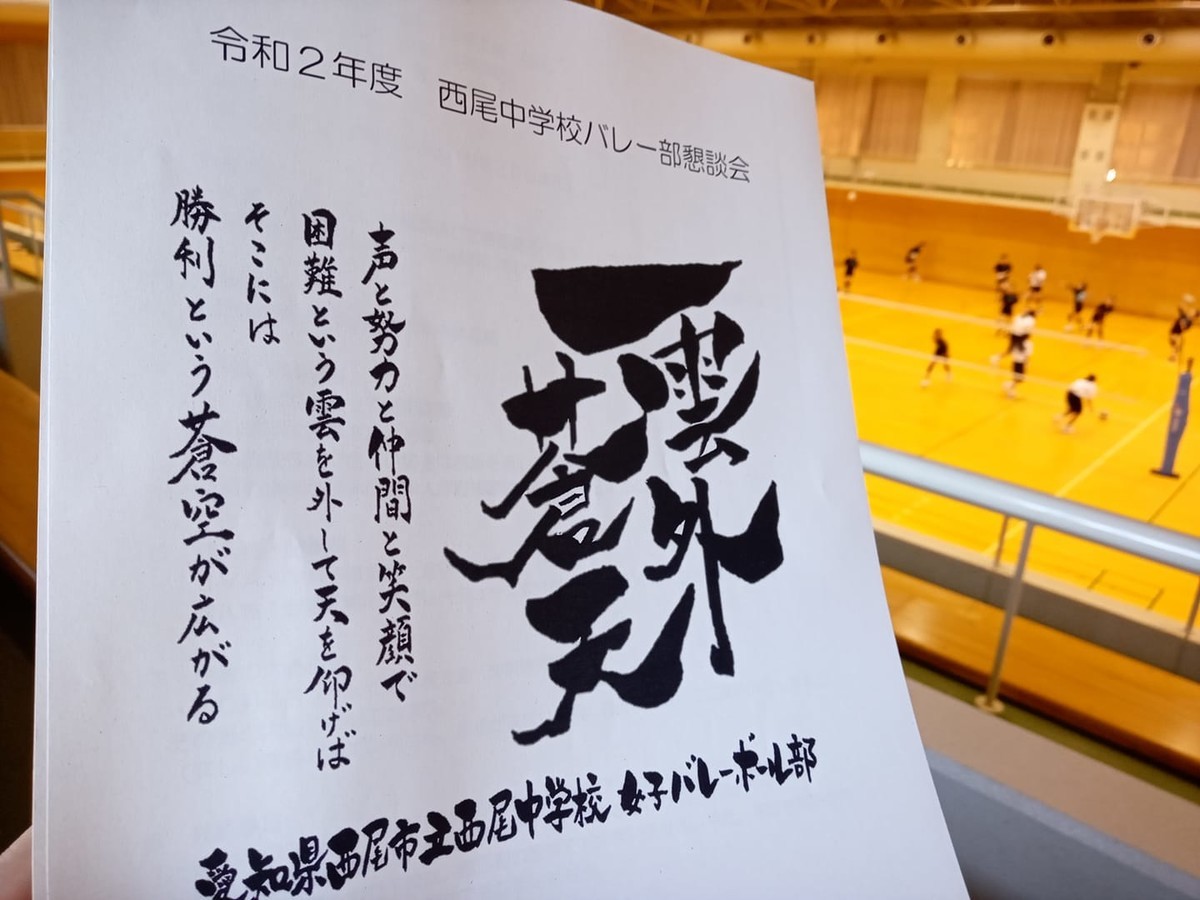 令和２年度　西尾中学校バレー部懇談会
雲外
蒼天
声と努力と仲間と笑顔で
困難という雲を外して天を仰げば
そこには
勝利という蒼空が広がる
愛知県西尾市立西尾中学校 女子バレーボール部